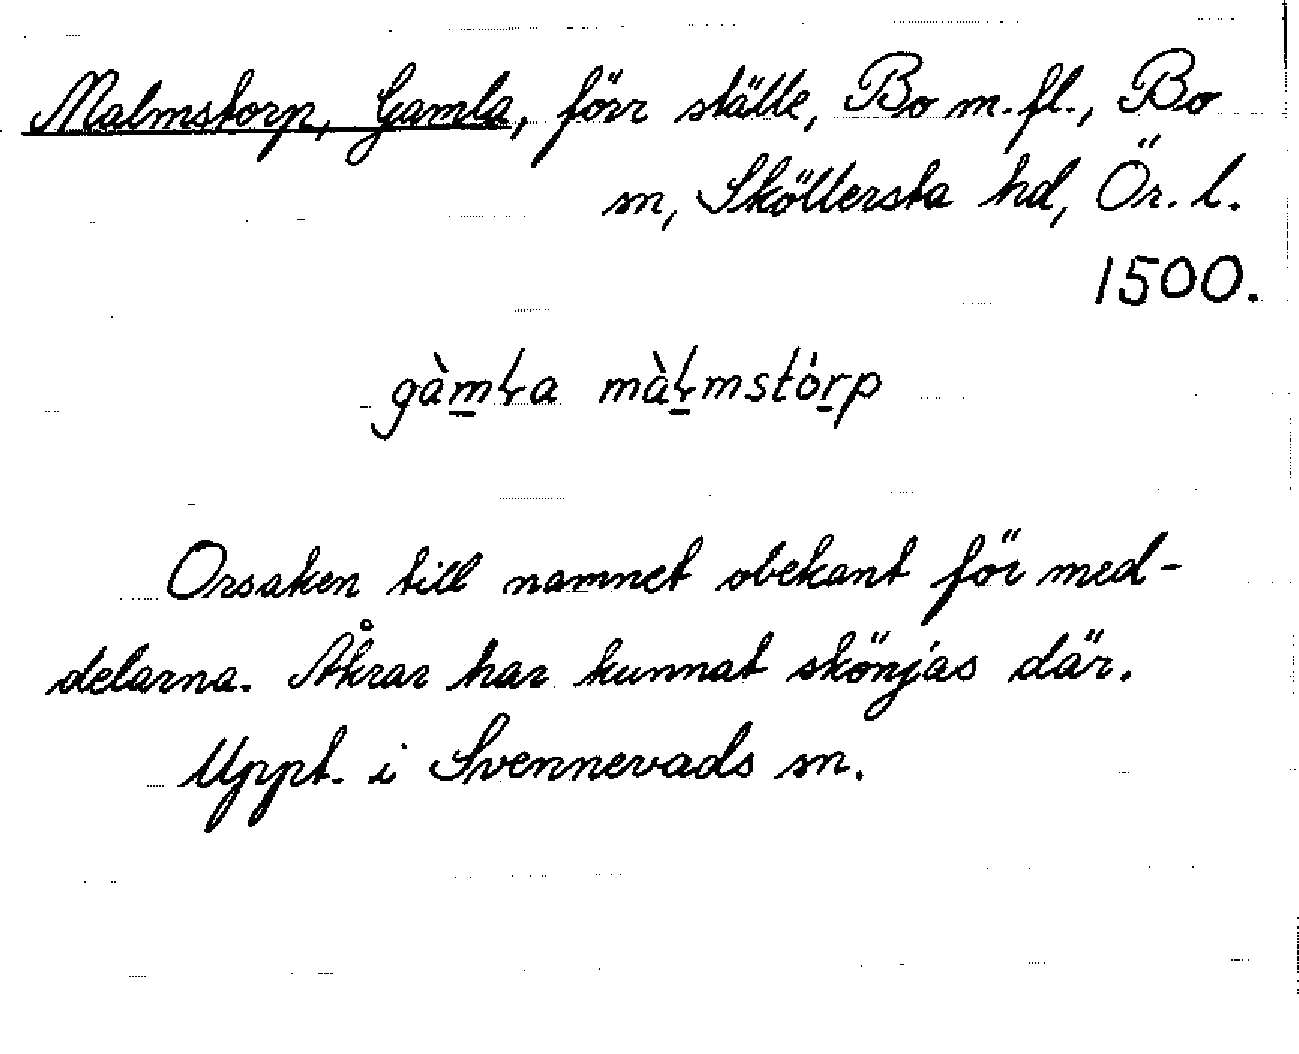 Malmstorp, Gamla, förr ställe, Bo m. fl., Bo
sn, Sköllersta hd, Ör. l.
1500.
gàmɫa màɫmstórp
Orsaken till namnet obekant för med-
delarna. Åkrar har kunnat skönjas där.
Uppt. i Svennevads sn.